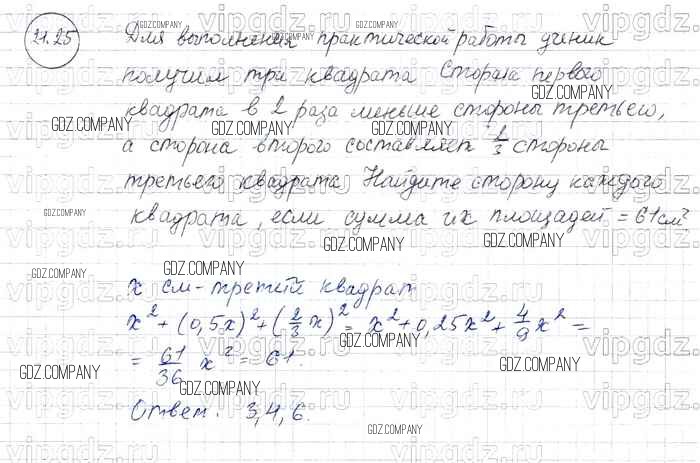 21.25
Для выполнения практической работы ученик
получил три квадрата Сторона первого
квадрата в 2 раза меньше стороны третьего,
а сторона второго составляет 2/3 стороны
третьего квадрата Найдите сторону каждого
квадрата, если сумма их площадей = 61 см²
x см - третий квадрат
x² + (0,5x)² + (2/3 x)² = x² + 0,25x² + 4/9 x² =
= 61/36 x² = 61.
Ответ. 3,4,6.
GDZ.COMPANY
vipgdz.ru